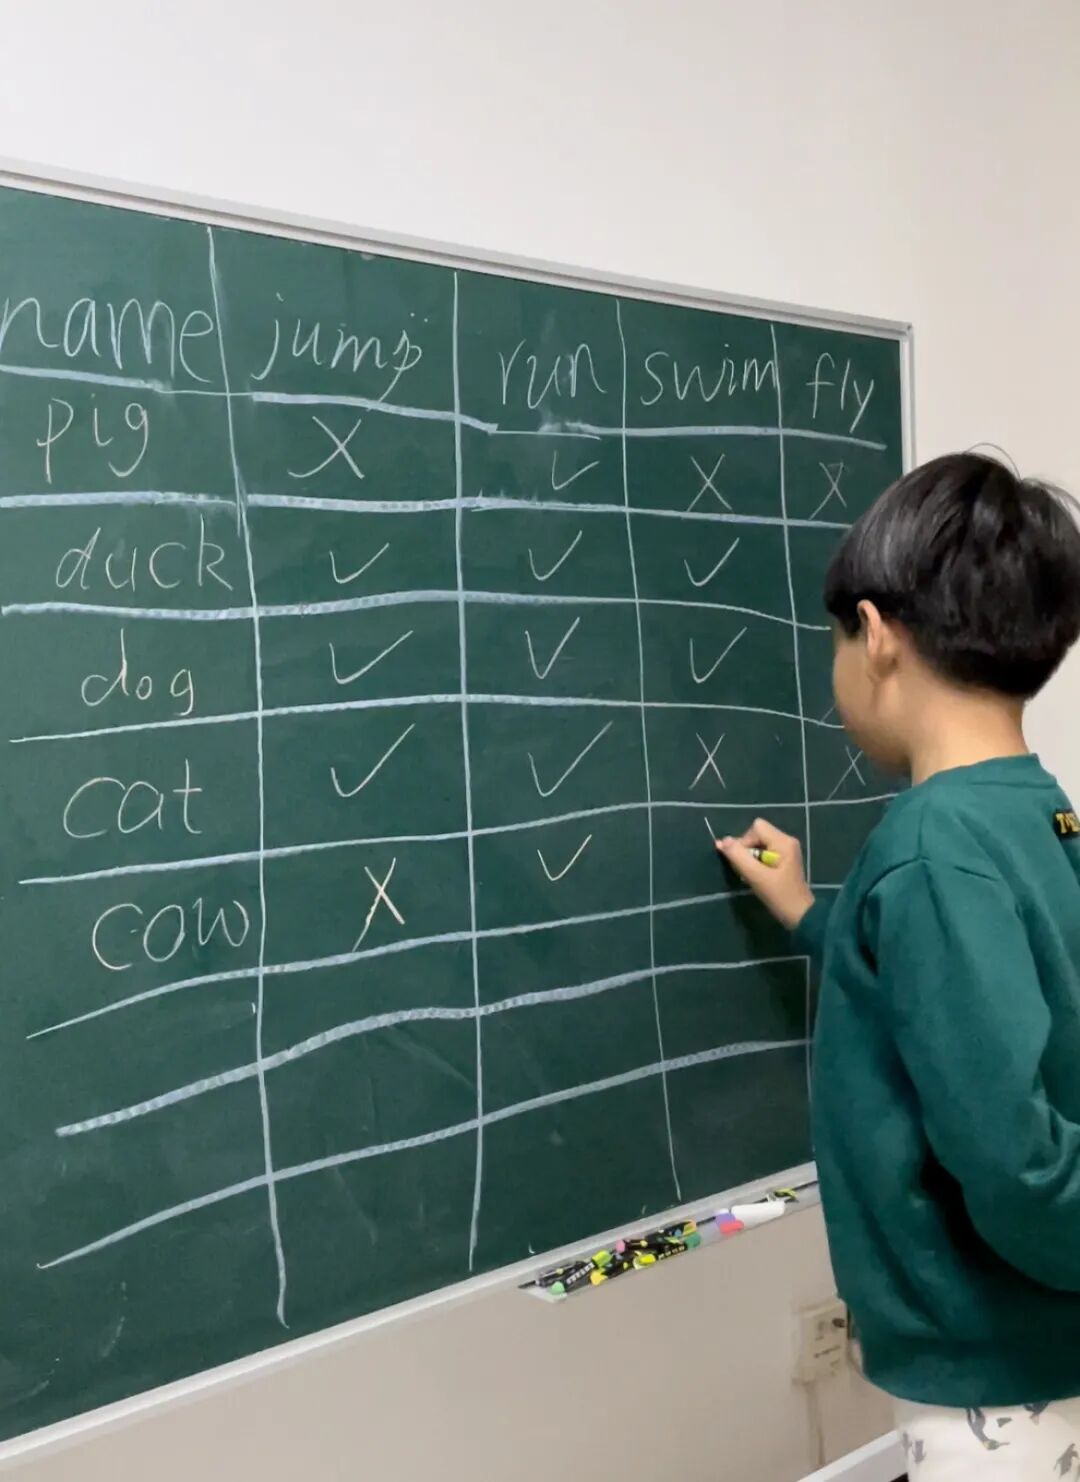 name jump run swim fly
pig X ✓ X X
duck ✓ ✓ ✓
dog ✓ ✓ ✓
cat ✓ ✓ X X
cow X ✓